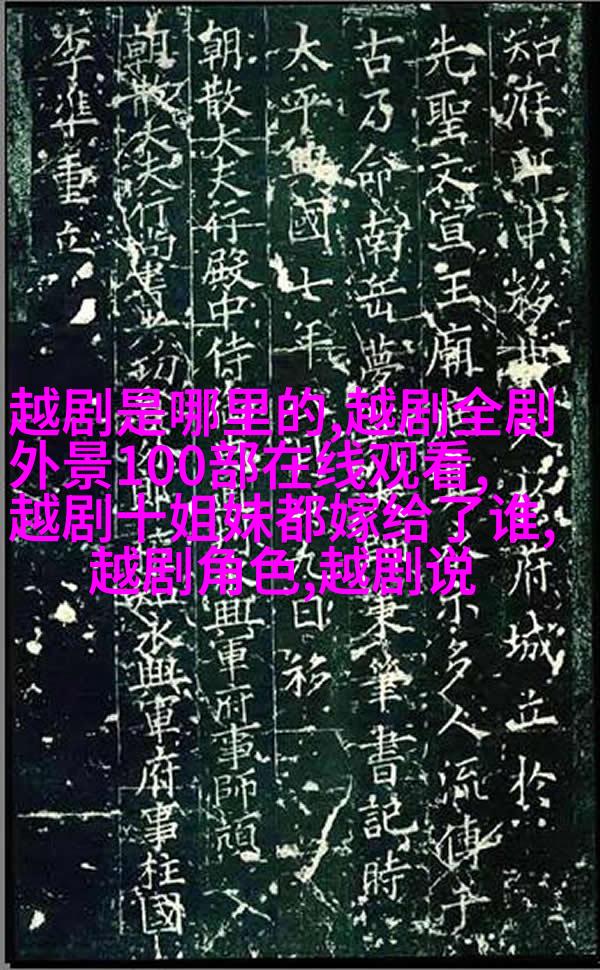 越剧是哪里的,越剧全剧
外景100部在线观看,
越剧十姐妹都嫁给了谁,
越剧角色,越剧说
知府 申移 府城立於
先聖文宣王廟 多人流傳于
古乃命南岳夢 秉筆書記時
太平興國七年 日移
朝散大夫行殿中侍 興軍府事師頏
朝散大夫行尚書 永興軍府事柱國
李準重立